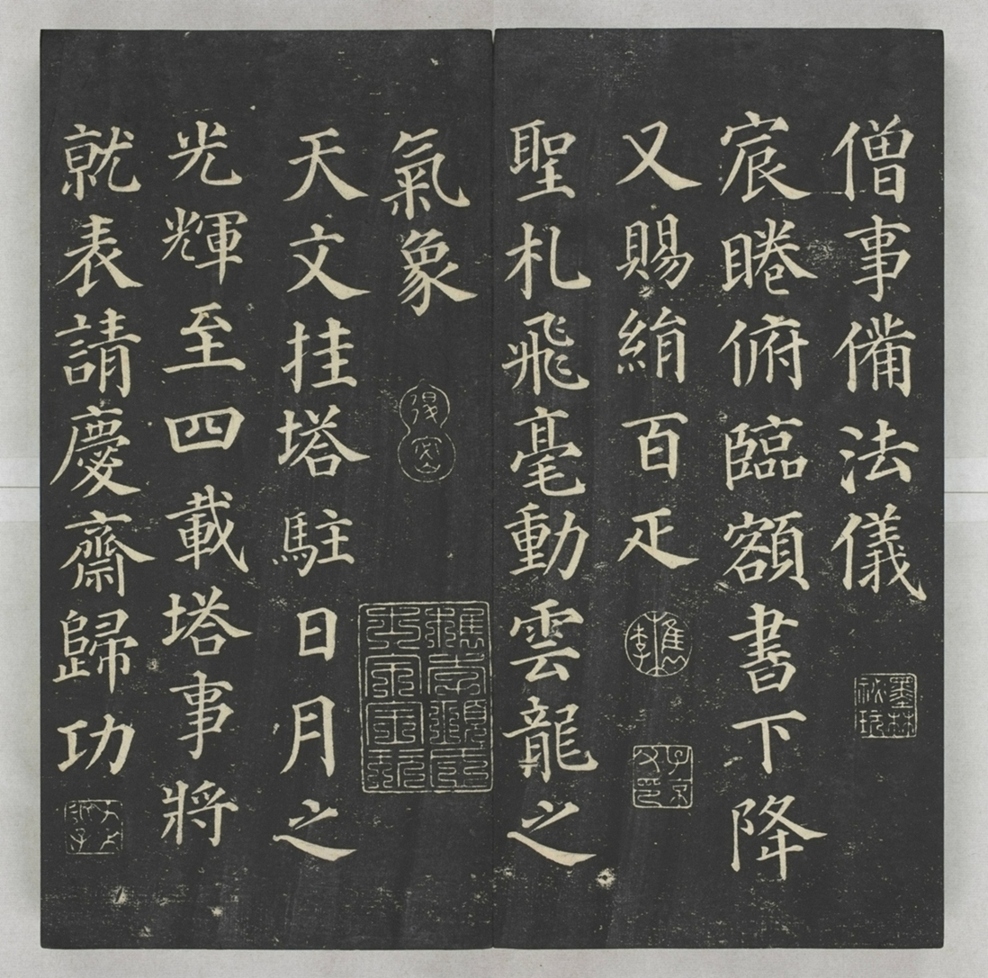 僧事備法儀
宸睠俯臨額書下降
又賜絹百疋
聖札飛毫動雲龍之
氣象
天文挂塔駐日月之
光輝至四載塔事將
就表請慶齋歸功